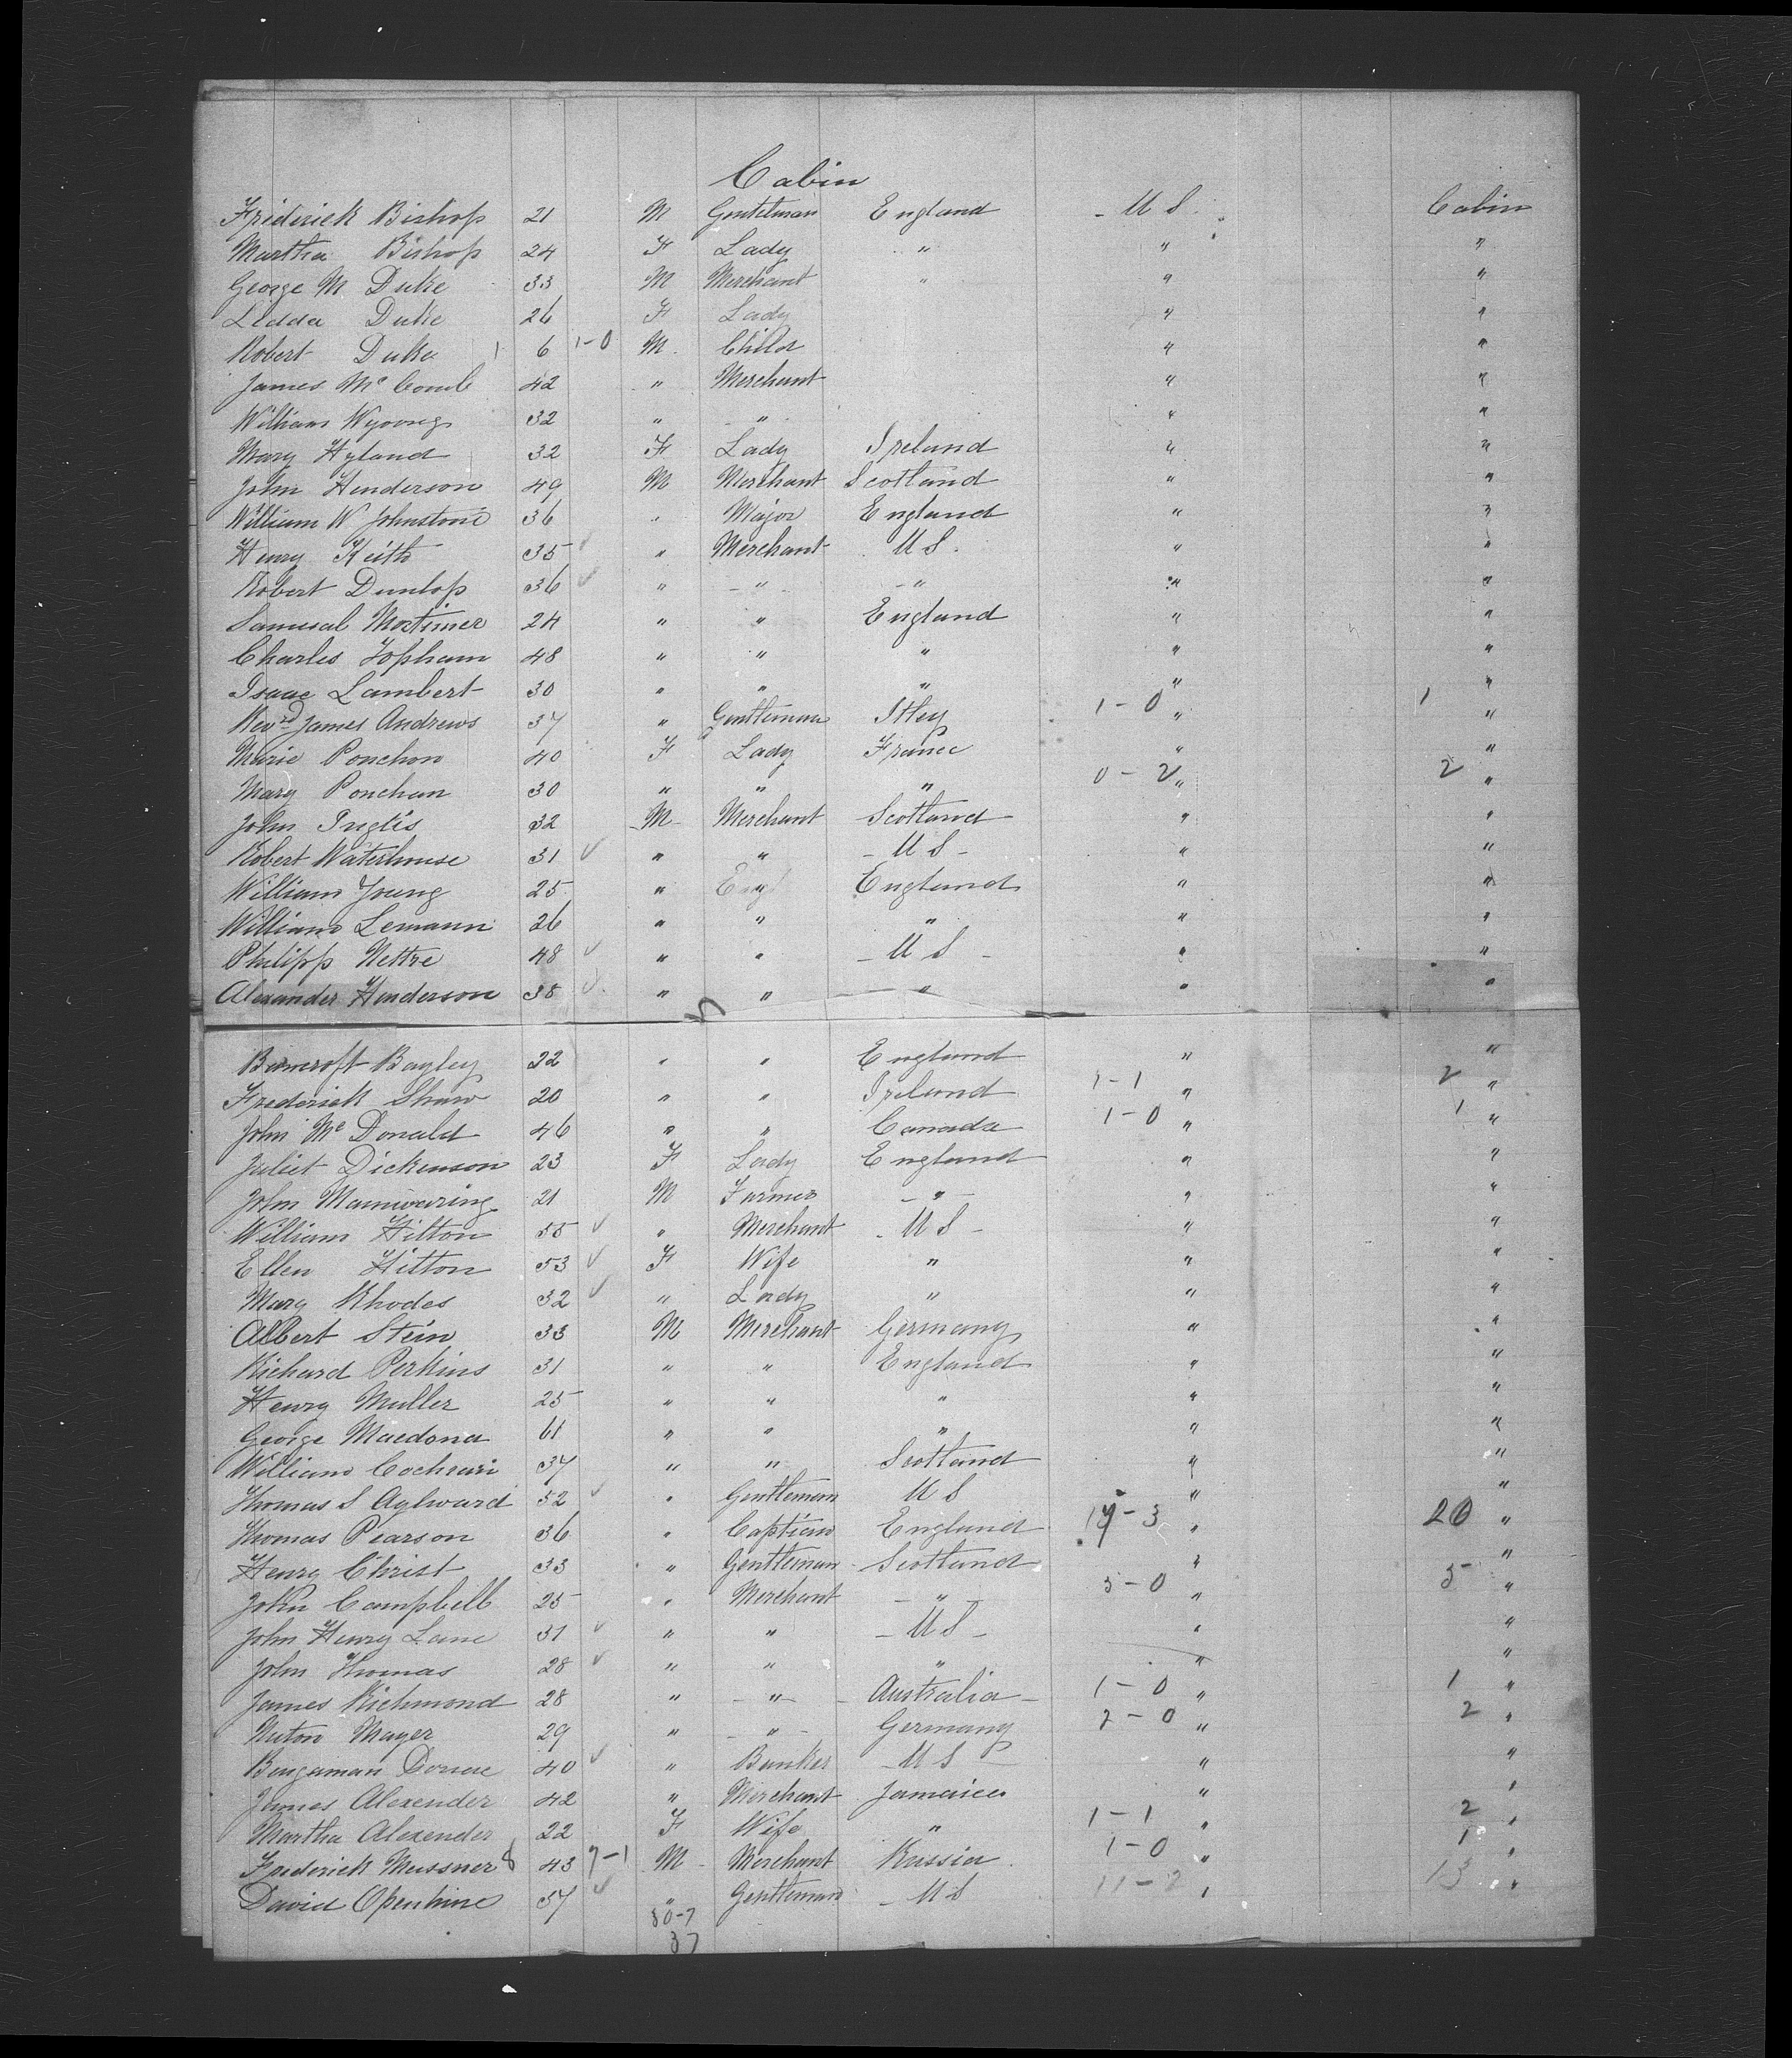 Cabin
Friderick Bishop 21 M Gentelman England - U S. Cabin
Martha Bishop 24 F Lady " " "
George M Duke 33 M Merchant " " "
Ledda Duke 26 F Lady " "
Robert Duke 1 6 1-0 M. Child " "
James Mc Comb 42 " Merchant " "
William Wyoung 32 " " " "
Mary Hyland 32 F Lady Ireland " "
John Henderson 49 M Merchant Scotland " "
William W Johnstone 36 " Major England " "
Henry Keith 35 ✓ " Merchant U S. " "
Robert Dunlop 36 ✓ " - " - " " "
Samueal Mortimer 24 " " England " "
Charles Topham 48 " " " " "
Isaac Lambert 30 " " " " "
Revrd James Andrews 37 " Gentleman Itley 1-0 " 1 "
Marie Ponchon 40 F Lady France " "
Mary Ponchon 30 " " " 0-2 " 2 "
John Inglis 32 M Merchant Scotland " "
Robert Waterhouse 31 ✓ " " - U S - " "
William Young 25 " " England " "
William Lemann 26 " " " " "
Philipp Nettre 48 ✓ " " - U S - " "
Alexander Henderson 38 ✓ " " " " "
Bancroft Bayley 22 " " England " "
Frederick Shaw 20 " " Ireland 1-1 " 2 "
John Mc Donald 46 " " Canada 1-0 " 1 "
Juliet Dickenson 23 F Lady England " "
John Mainwaring 21 M Farmer - " - " "
William Hilton 55 ✓ " Merchant - U S - " "
Ellen Hilton 53 ✓ F Wife " " "
Mary Rhodes 32 ✓ " Lady " " "
Albert Stein 33 M Merchant Germany " "
Richard Perkins 31 " " England " "
Henry Muller 25 " " " " "
George Macdona 61 " " " " "
William Cochran 37 " " Scotland " "
Thomas S Aylward 52 ✓ " Gentleman U S " "
Thomas Pearson 36 " Captian England 17-3 " 20 "
Henry Christ 33 " Gentleman Scotland " "
John Campbell 25 " Merchant - " - 5-0 " 5 "
John Henry Lane 31 ✓ " " - U S - " "
John Thomas 28 ✓ " " " " "
James Richmond 28 " - " - Australia 1-0 " 1 "
Nuton Mayer 29 " - " - Germany 2-0 " 2 "
Bengaman 40 ✓ " Banker - U S - " "
James Alexender 42 " Merchant Jamaica " "
Martha Alexender 22 F Wife " 1-1 " 2 "
Frederick Meissner 8 43 7-1 M Merchant Russia 1-0 " 1 "
David Openhime 57 ✓ " Gentleman - U S 11-2 " 13 "
30-7
37